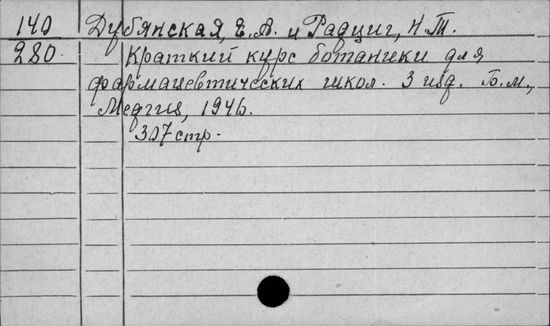 140 Дубянская, Е.А. и Радциг, Н.Т.
280. Краткий курс ботаники для
фармацевтических школ. 3 изд. Б.м.,
Медгиз, 1946.
307 стр.